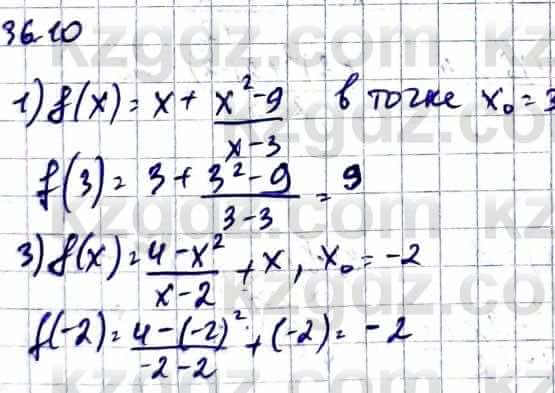 36.10
1) f(x) = x + \frac{x^2-9}{x-3} в точке x_0 = 3
f(3) = 3 + \frac{3^2-9}{3-3} = 9
3) f(x) = \frac{4-x^2}{x-2} + x, x_0 = -2
f(-2) = \frac{4-(-2)^2}{-2-2} + (-2) = -2